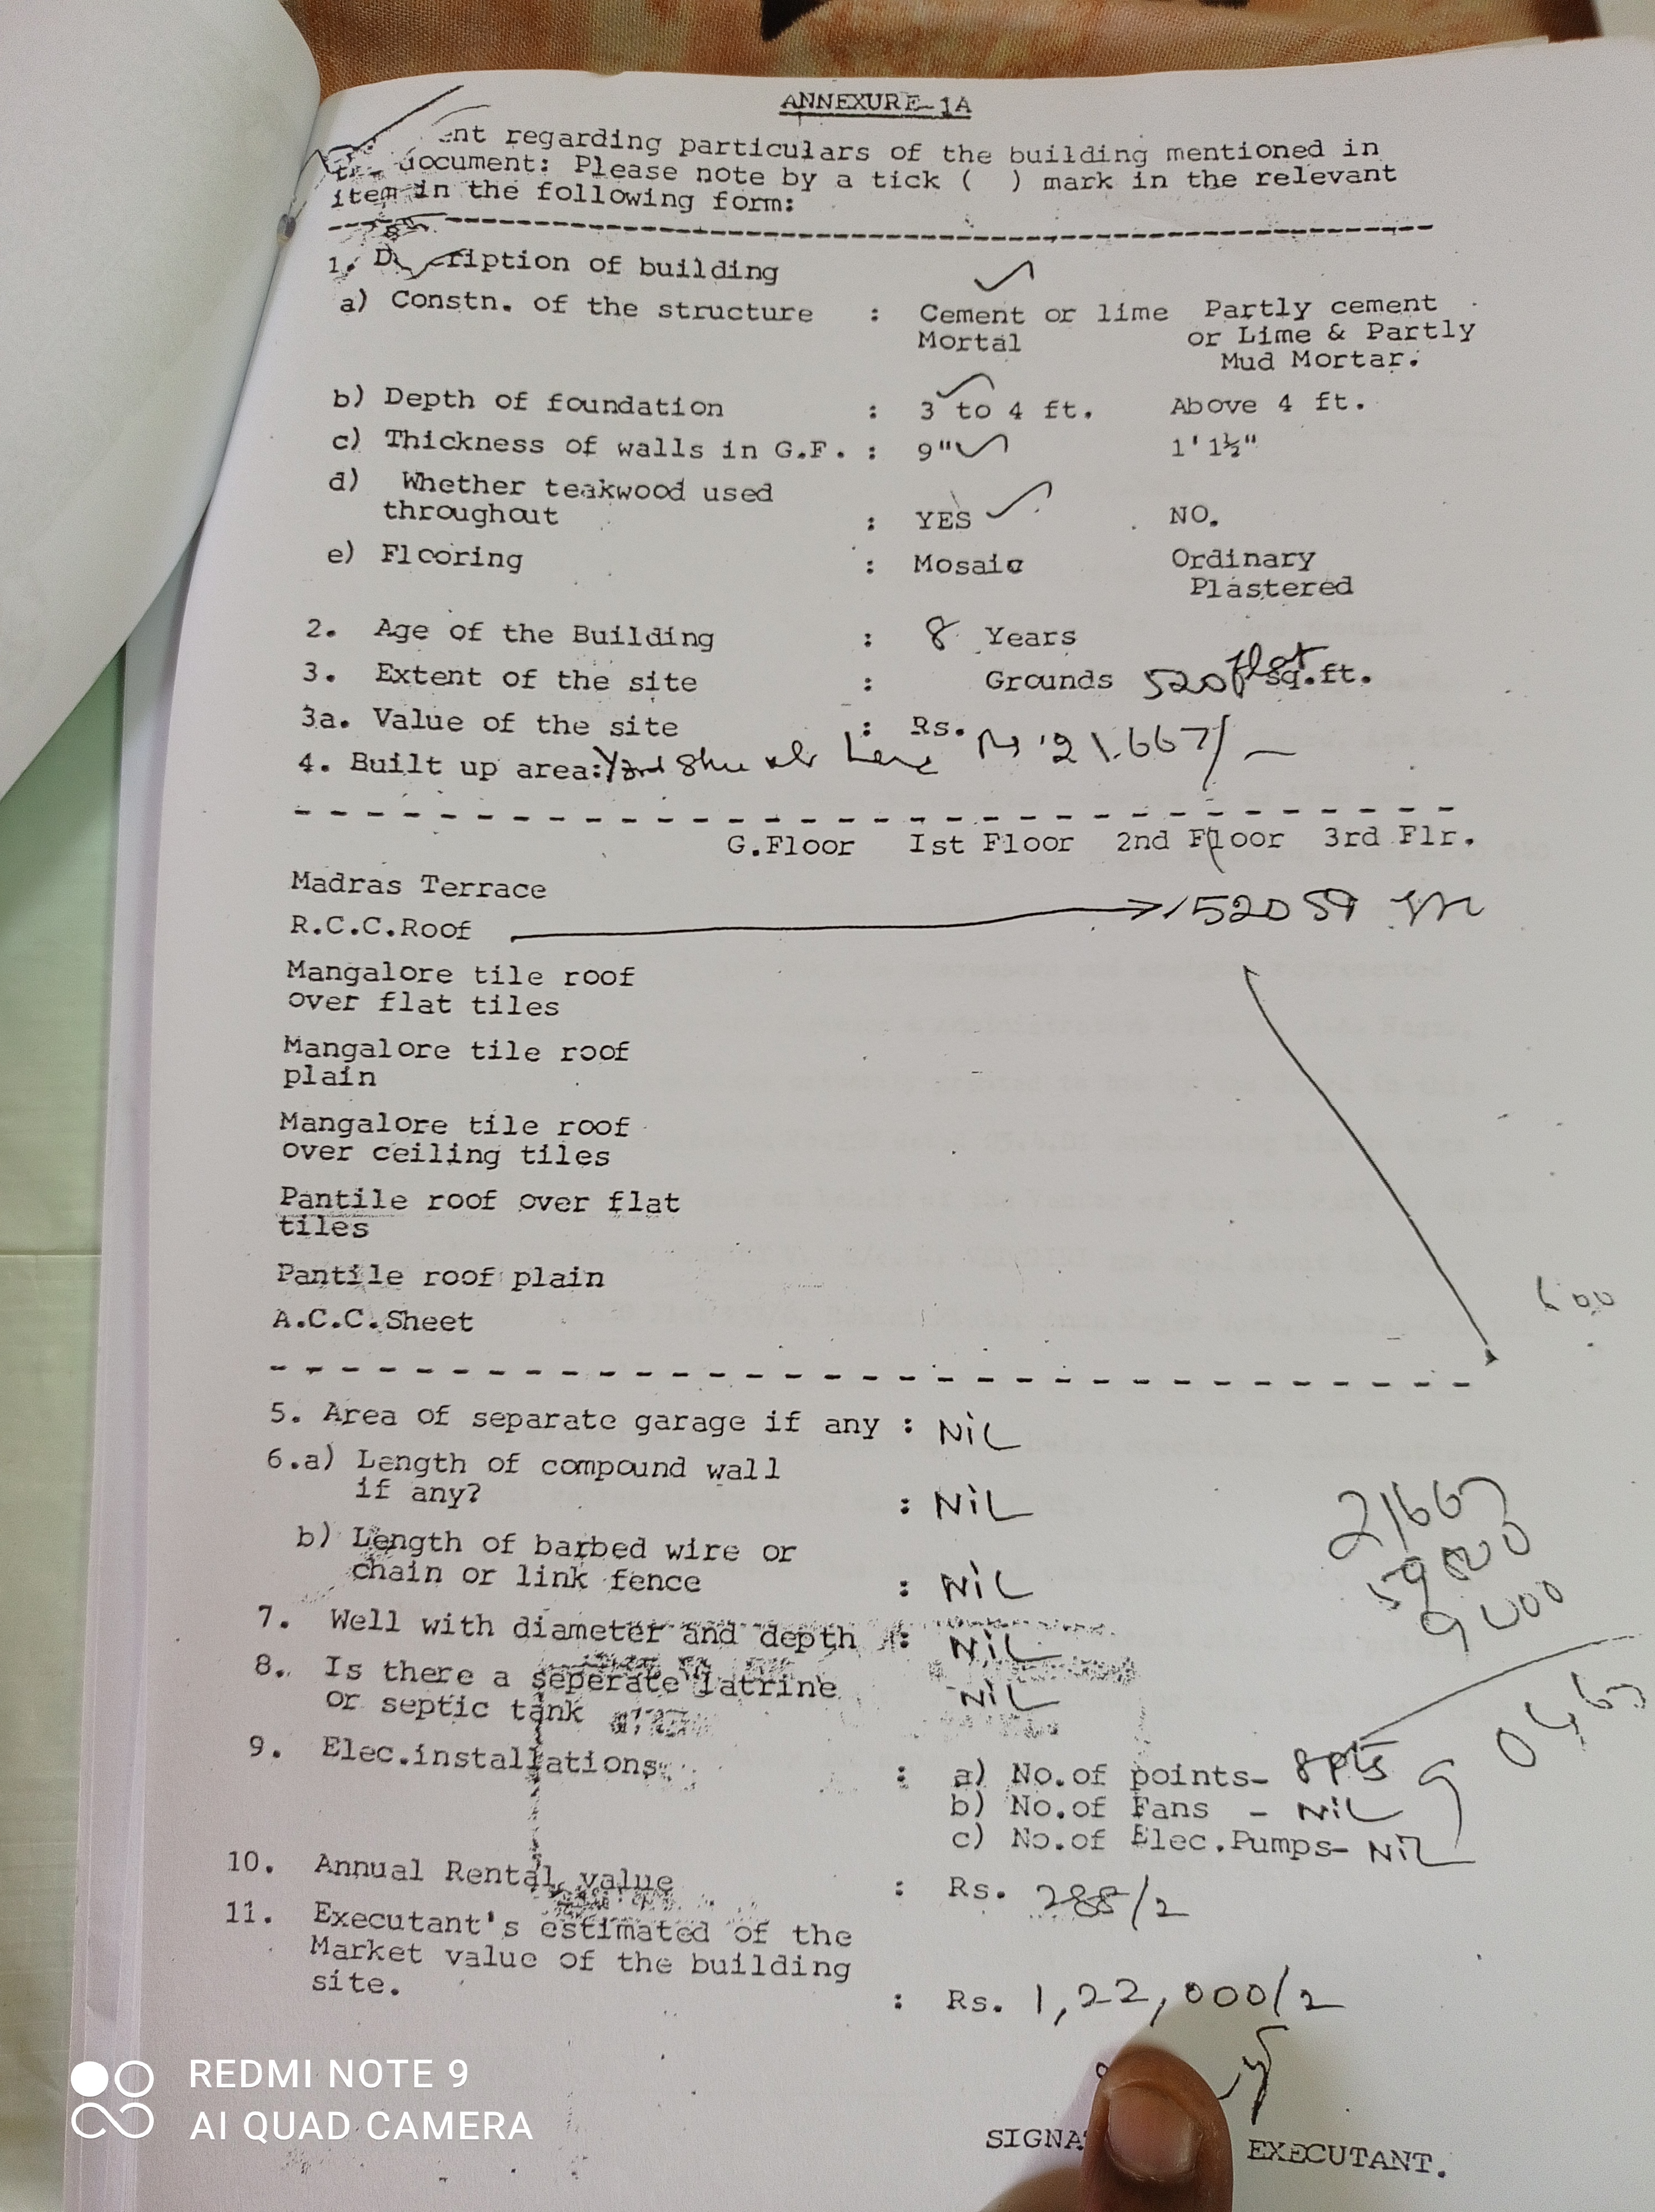 ANNEXURE-1A
regarding particulars of the building mentioned in
document: Please note by a tick (  ) mark in the relevant
item in the following form:
1. Description of building
a) Constn. of the structure : Cement or lime Partly cement
Mortal or Lime & Partly
Mud Mortar.
b) Depth of foundation : 3 to 4 ft. Above 4 ft.
c) Thickness of walls in G.F. : 9" 1'1½"
d) Whether teakwood used
throughout : YES NO.
e) Flooring : Mosaic Ordinary
Plastered
2. Age of the Building : 8 Years
flat
3. Extent of the site : Grounds 520 sq.ft.
3a. Value of the site : Rs.
4. Built up area: 21.667/-
G.Floor Ist Floor 2nd Floor 3rd Flr.
Madras Terrace
R.C.C.Roof 520 
Mangalore tile roof
over flat tiles
Mangalore tile roof
plain
Mangalore tile roof
over ceiling tiles
Pantile roof over flat
tiles
Pantile roof plain
A.C.C.Sheet
5. Area of separate garage if any : NiL
6.a) Length of compound wall
if any? : NiL
b) Length of barbed wire or
chain or link fence : NiL
7. Well with diameter and depth : NiL
8. Is there a seperate latrine
or septic tank NiL
21667
9. Elec.installations : a) No.of points- 8 pts
b) No.of Fans - NiL
c) No.of Elec.Pumps- NiL
10. Annual Rental value : Rs. 288/2
11. Executant's estimated of the
Market value of the building
site. : Rs. 1,22,000/2
EXECUTANT.
REDMI NOTE 9
AI QUAD CAMERA